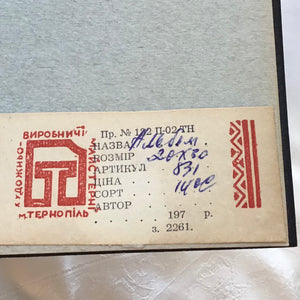 ХУДОЖНЬО-ВИРОБНИЧІ МАЙСТЕРНІ
м. ТЕРНОПІЛЬ
Пр. № 132 П-02 ТН
НАЗВА Альбом.
РОЗМІР 20х30
АРТИКУЛ 831
ЦІНА 14 00
СОРТ
АВТОР
197 р.
з. 2261.